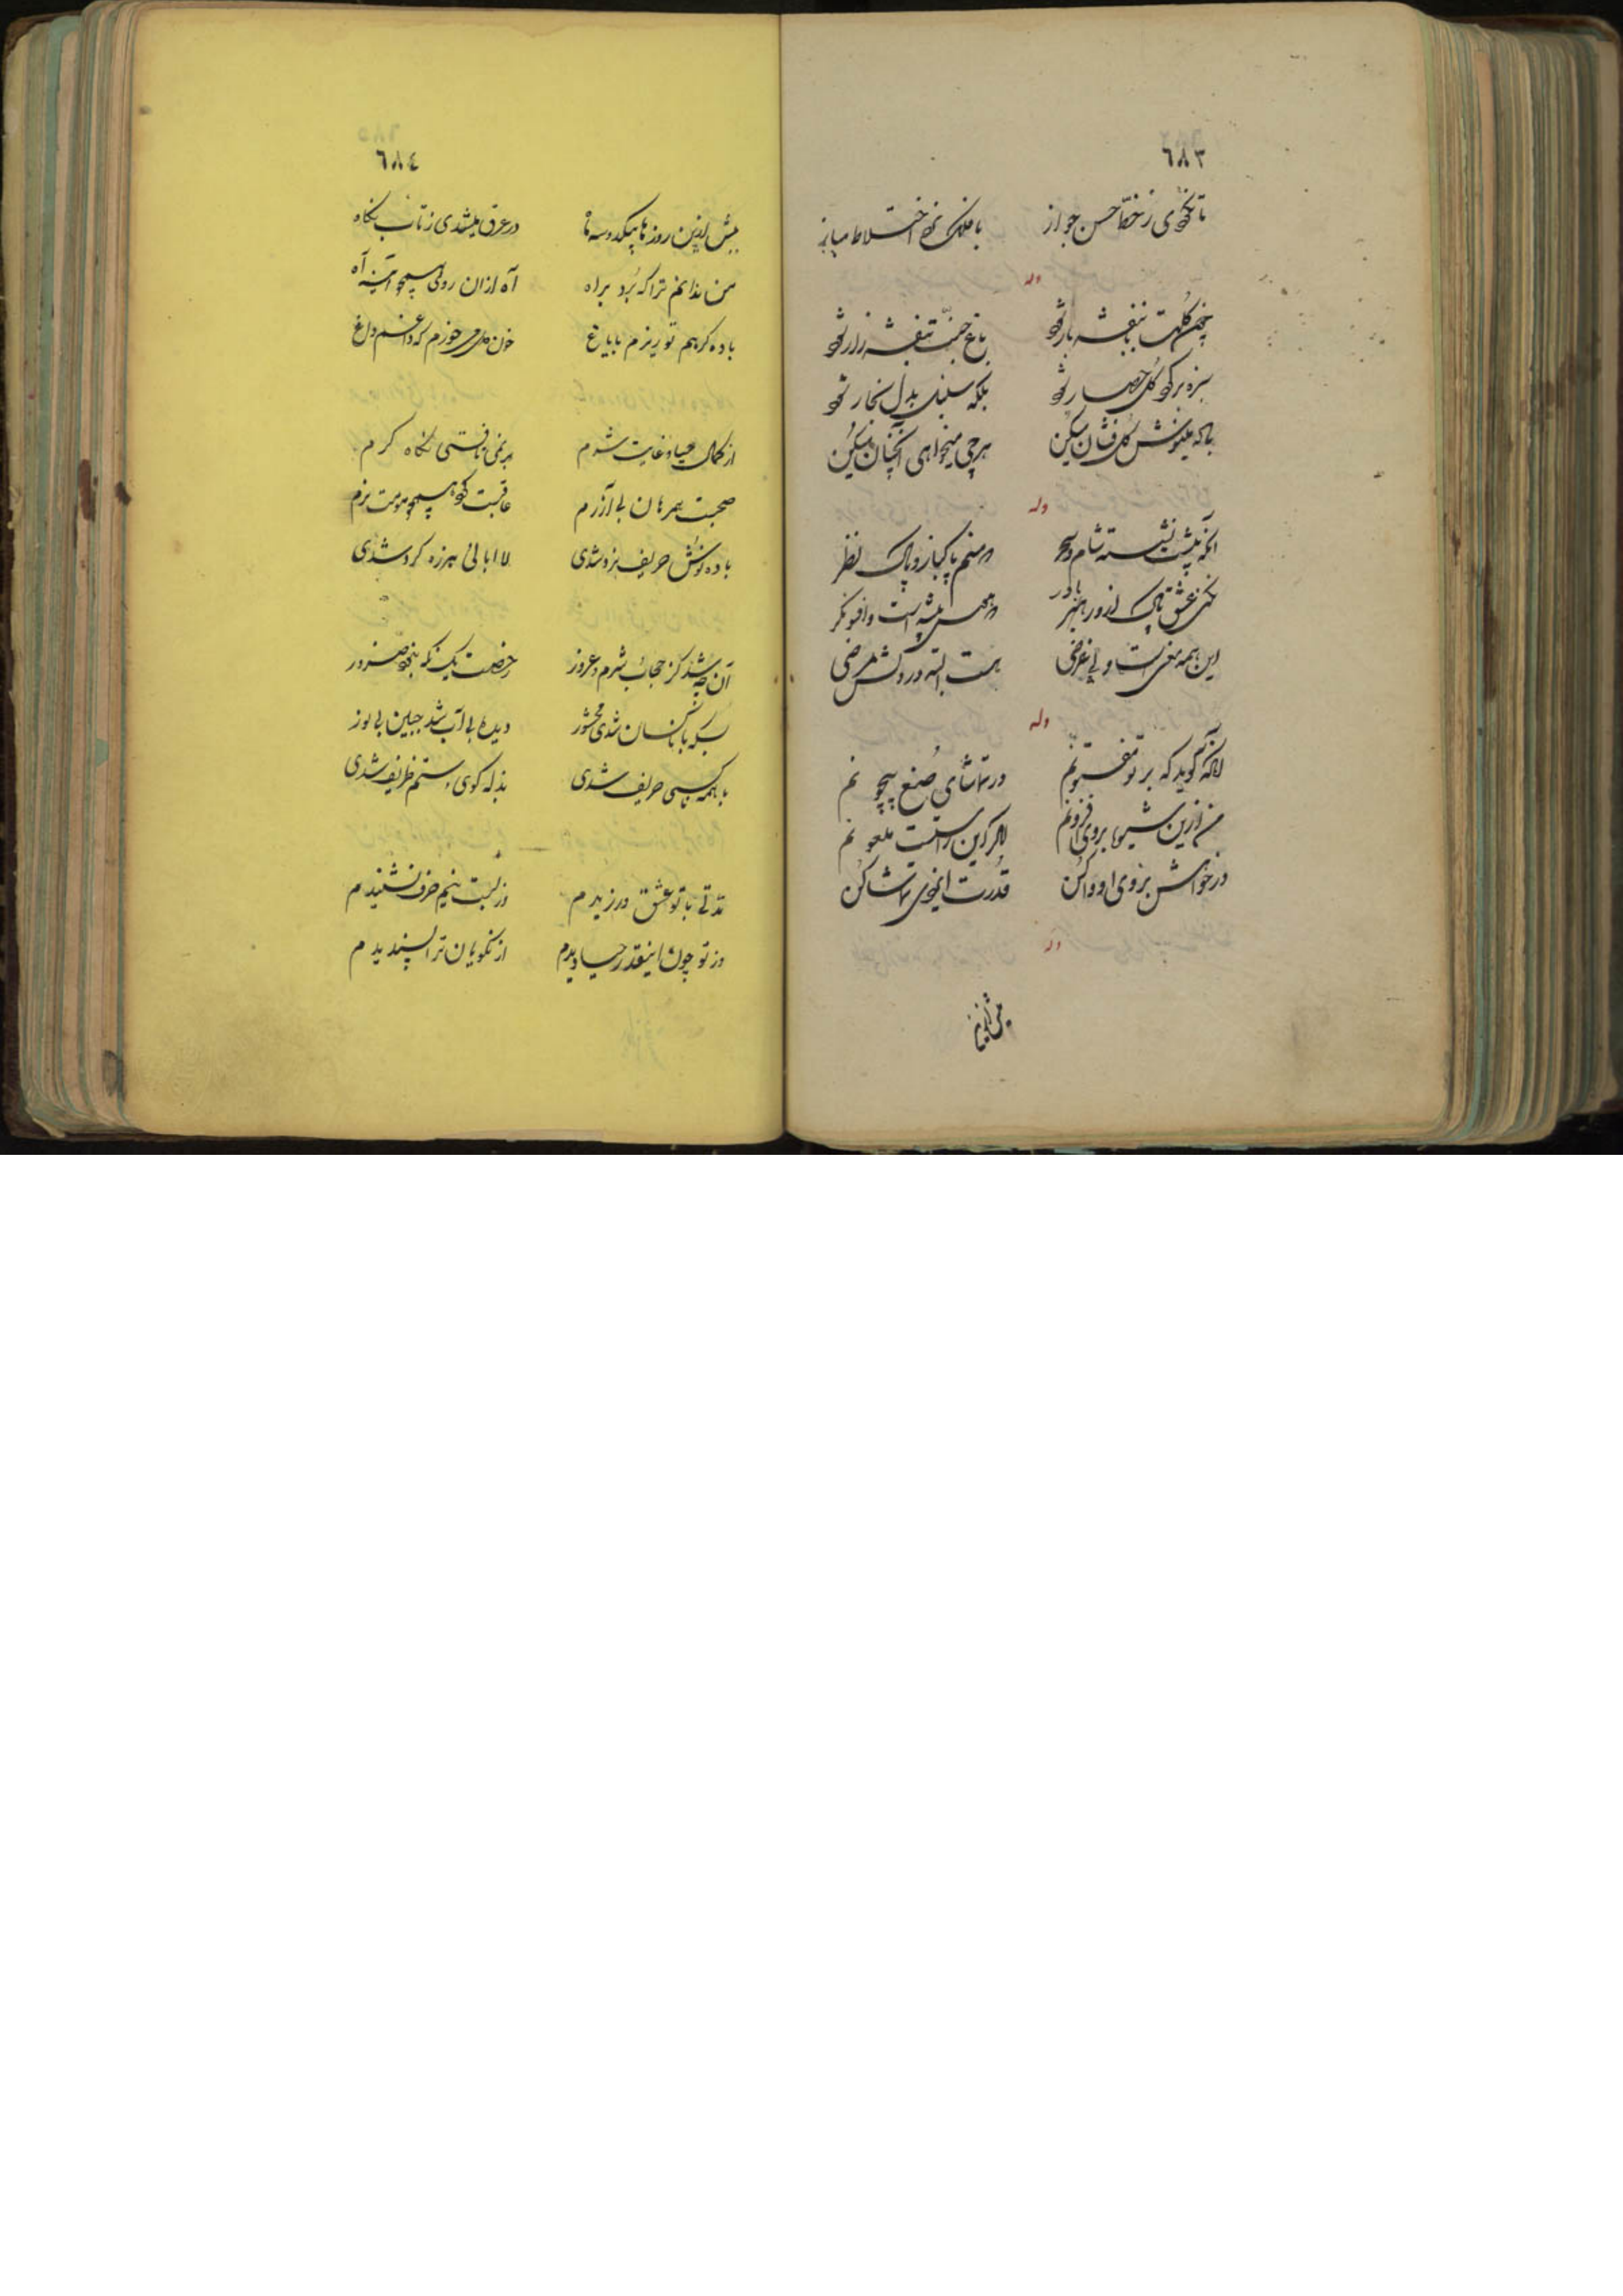 ٦٨٣
تا نگوی ز خط حسن جواز
با فلک نرد اختلاط مباز
وله
چمن گلت بنفشه بار شود
باغ جنت بنفشه زار شود
سبزه بر گرد گل حصار شود
بلکه سنبل بدل بخار شود
گل فشان میکن
هرچه میخواهی آنچنان میکن
وله
آنکه پیشت نشسته شام و سحر
که منم پاکباز و پاک نظر
نکنی عشق پاک ازو باور
پیشه است و افسونگر
این همه نیست و بی غرضی
هست البته در دلش مرضی
وله
آنکه گوید که بر تو مفتونم
در تماشای صنع بیچونم
من ازین شیوها برو افزونم
گر این راست ملعونم
در خواهش بروی او وا کن
قدرت ایزدی تماشا کن
وله
پیش ازین
٦٨٤
پیش ازین روزها بیکدو سه ماه
در عرق میشدی ز تاب نگاه
من ندانم ترا که برد براه
آه ازان روی همچو آینه آه
باده گر هم تو ریزیم بایاغ
خون دل میخورم که داغم داغ
از کمال حیا و غایت شرم
برنمی تافتی نگاه گرم
صحبت همرهان بی آزرم
عاقبت کرد همچو مومت نرم
باده نوش حریف بزه شدی
لا ابالی هرزه گرد شدی
آن چه شد کز حجاب شرم و غرور
رخصت یک نگه بجد ضرور
بسکه با ناکسان شدی محشور
دیده بی آب شد جبین بی نور
با همه کس حریف شدی
بذله گوی و ستم ظریف شدی
مدتی با تو عشق ورزیدم
وز لبت نیم حرف نشنیدم
وز تو چون اینقدر حیا دیدم
از نکویان ترا پسندیدم